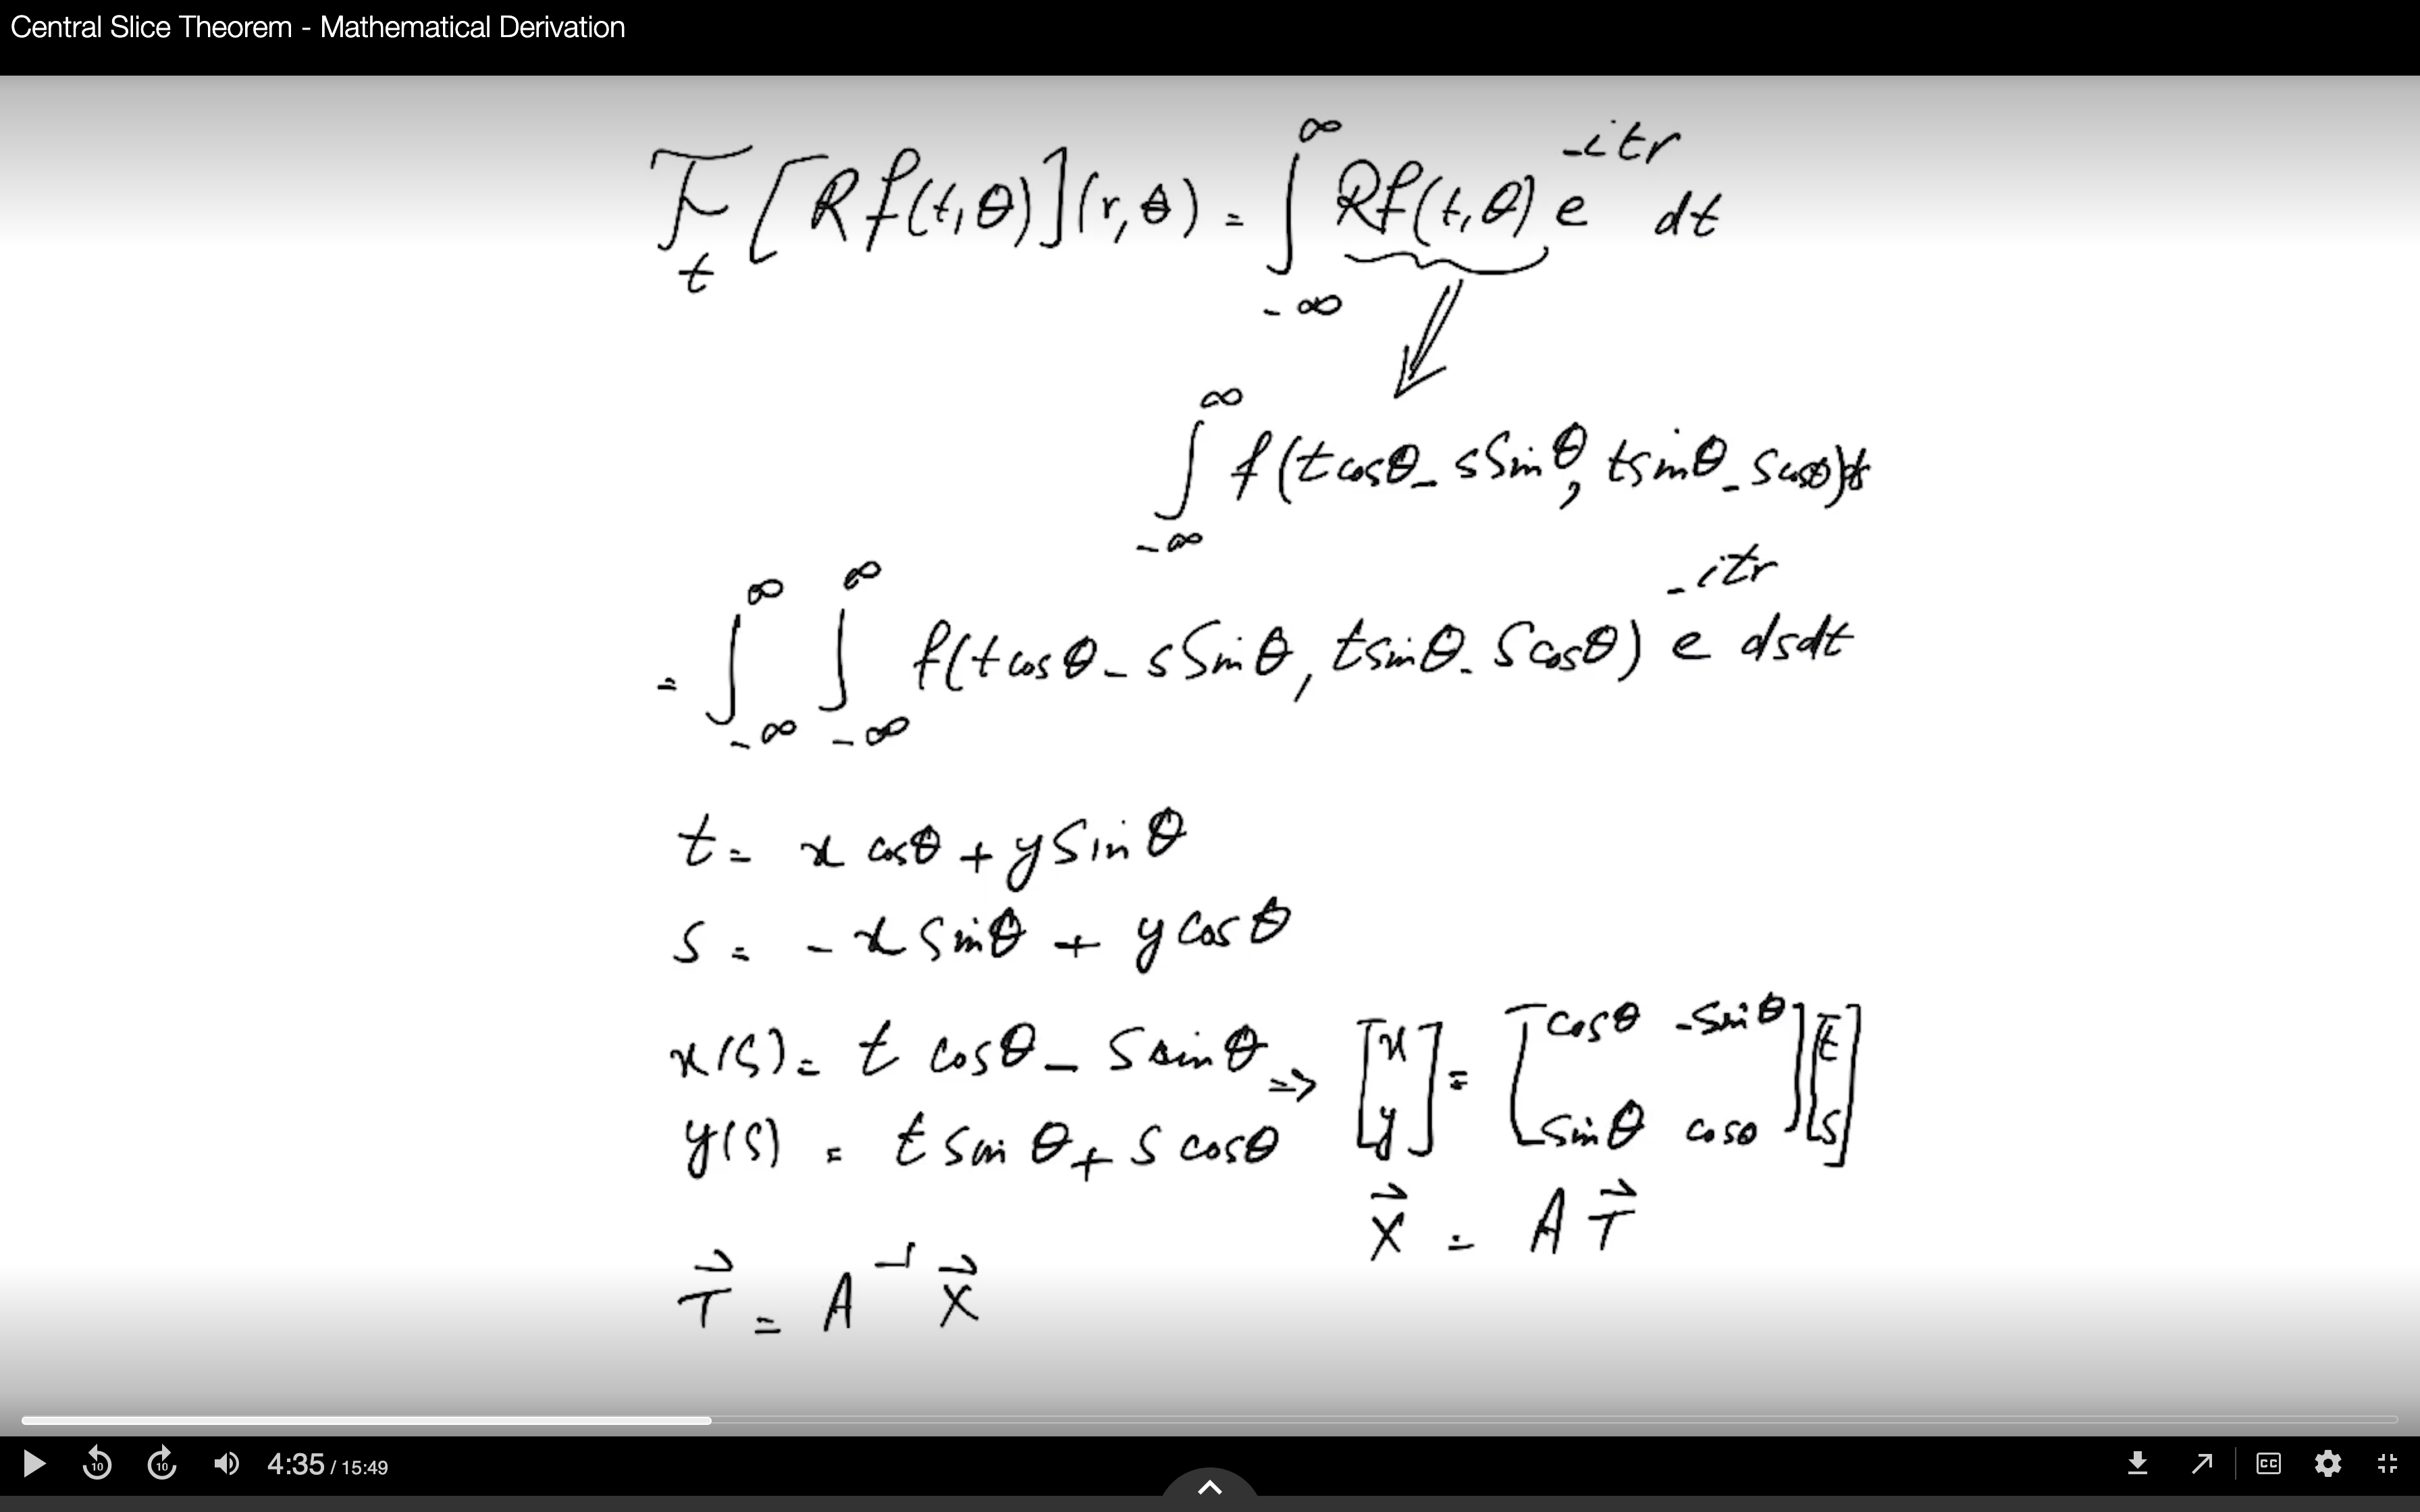 Central Slice Theorem - Mathematical Derivation
F_t [Rf(t,θ)](r,θ) = ∫_{-∞}^{∞} Rf(t,θ) e^{-itr} dt
∫_{-∞}^{∞} f(t cosθ - s Sinθ, t sinθ - s cosθ) ds
= ∫_{-∞}^{∞} ∫_{-∞}^{∞} f(t cosθ - s Sinθ, t sinθ - S cosθ) e^{-itr} ds dt
t = x cosθ + y Sinθ
S = - x Sinθ + y Cosθ
x(S) = t cosθ - S sinθ => [x y] = [cosθ -Sinθ Sinθ cosθ][t S]
y(S) = t Sin θ + S cosθ
X⃗ = A T⃗
T⃗ = A^{-1} X⃗
10 10 4:35 / 15:49 CC